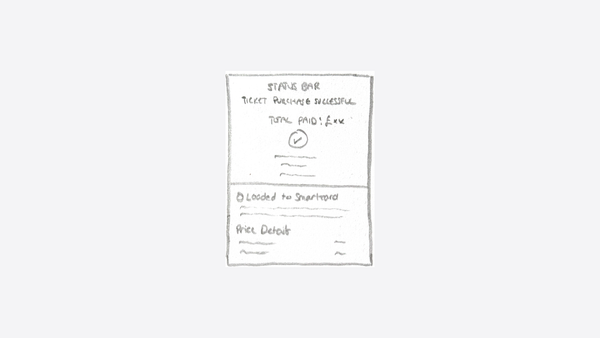 STATUS BAR
TICKET PURCHASE SUCCESSFUL
TOTAL PAID: £xx
Loaded to Smartcard
Price Details